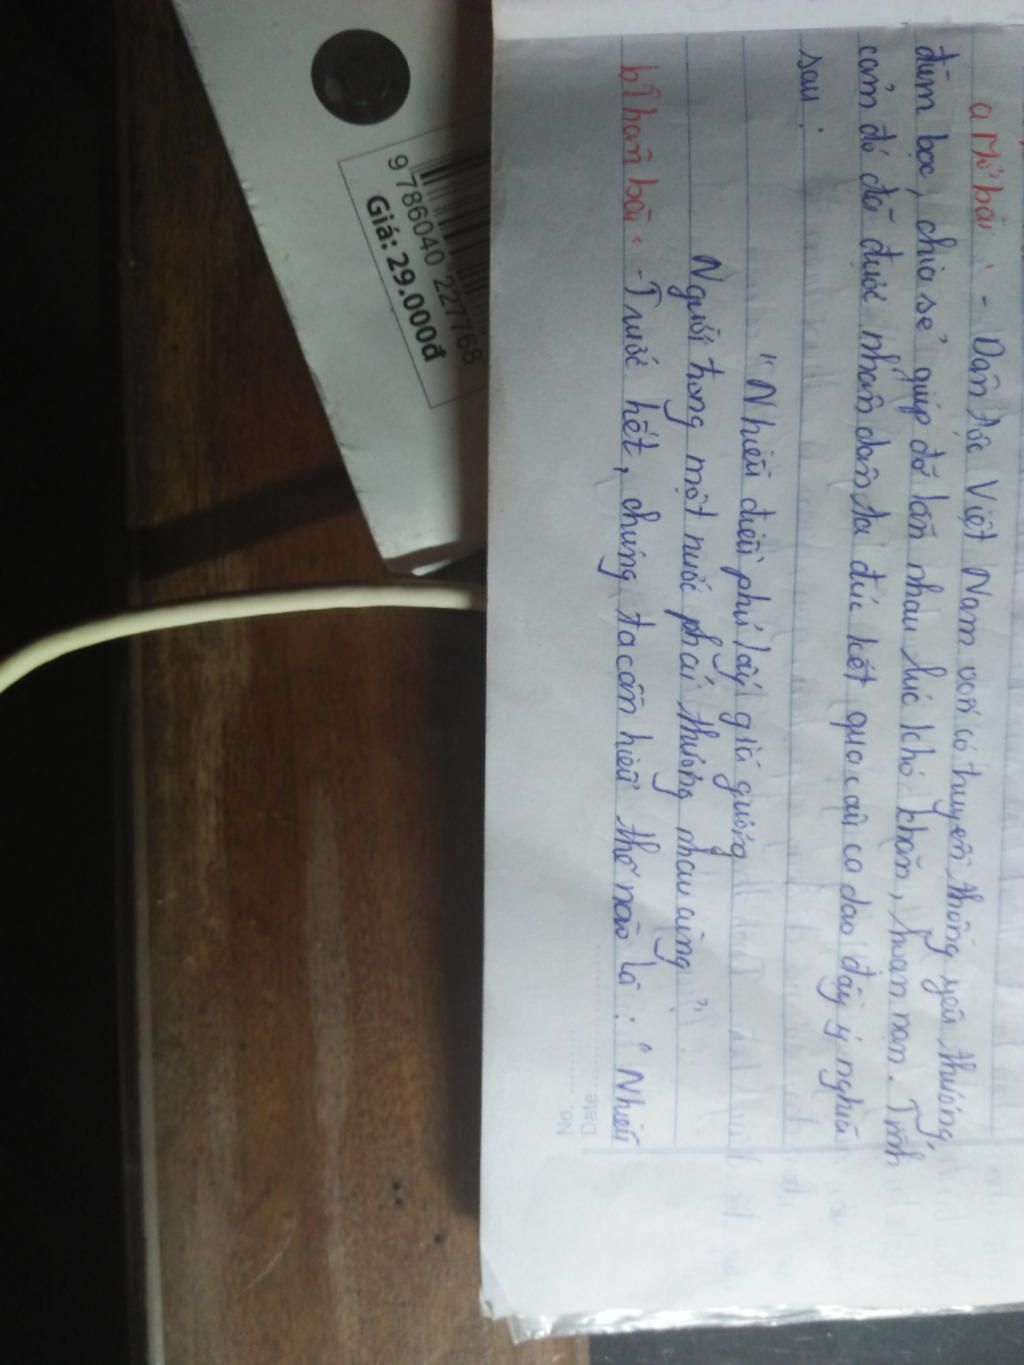 a Mở bài : - Dân tộc Việt Nam vốn có truyền thống yêu thương,
đùm bọc, chia sẻ giúp đỡ lẫn nhau lúc khó khăn, hoạn nạn. Tình
cảm đó đã được nhân dân ta đúc kết qua câu ca dao đầy ý nghĩa
sau :
" Nhiễu điều phủ lấy giá gương
Người trong một nước phải thương nhau cùng "
b Thân bài : - Trước hết, chúng ta cần hiểu thế nào là : " Nhiễu
No.
Date
9 786040 227768
Giá: 29.000đ